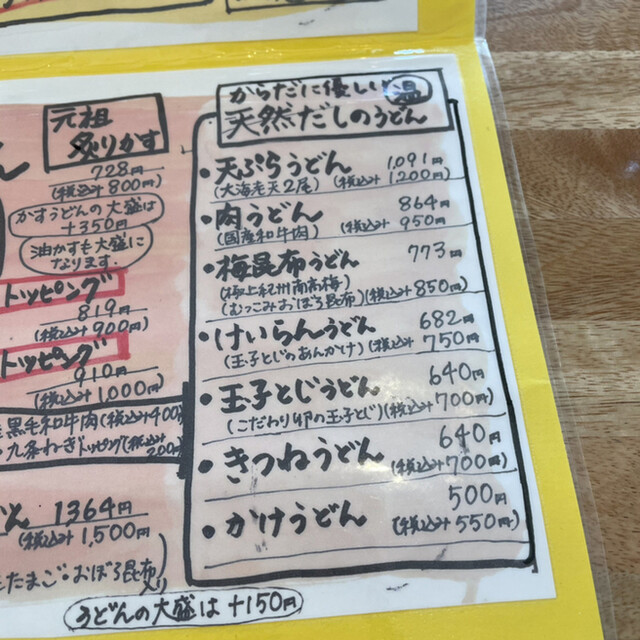 元祖
炙りかす
ん
728円
(税込み800円)
かすうどんの大盛は
+350円
油かすも大盛に
なります.
トッピング
819円
(税込み900円)
トッピング
910円
(税込み1000円)
黒毛和牛肉(税込み400
九条ねぎトッピング(税込み
200円
1364円
(税込み1,500円
たまご・おぼろ昆布
入り
からだに優しい 温
天然だしのうどん
・天ぷらうどん 1,091円
(大海老天2尾) (税込み1200円)
・肉うどん 864円
(国産和牛肉) (税込み950円)
・梅昆布うどん 773円
(極上紀州南高梅)
(むっこみおぼろ昆布)(税込み850円)
・けいらんうどん 682円
(玉子とじのあんかけ) (税込み750円)
・玉子とじうどん 640円
(こだわり卵の玉子とじ)(税込み700円)
・きつねうどん 640円
(税込み700円)
・かけうどん 500円
(税込み550円)
うどんの大盛は+150円